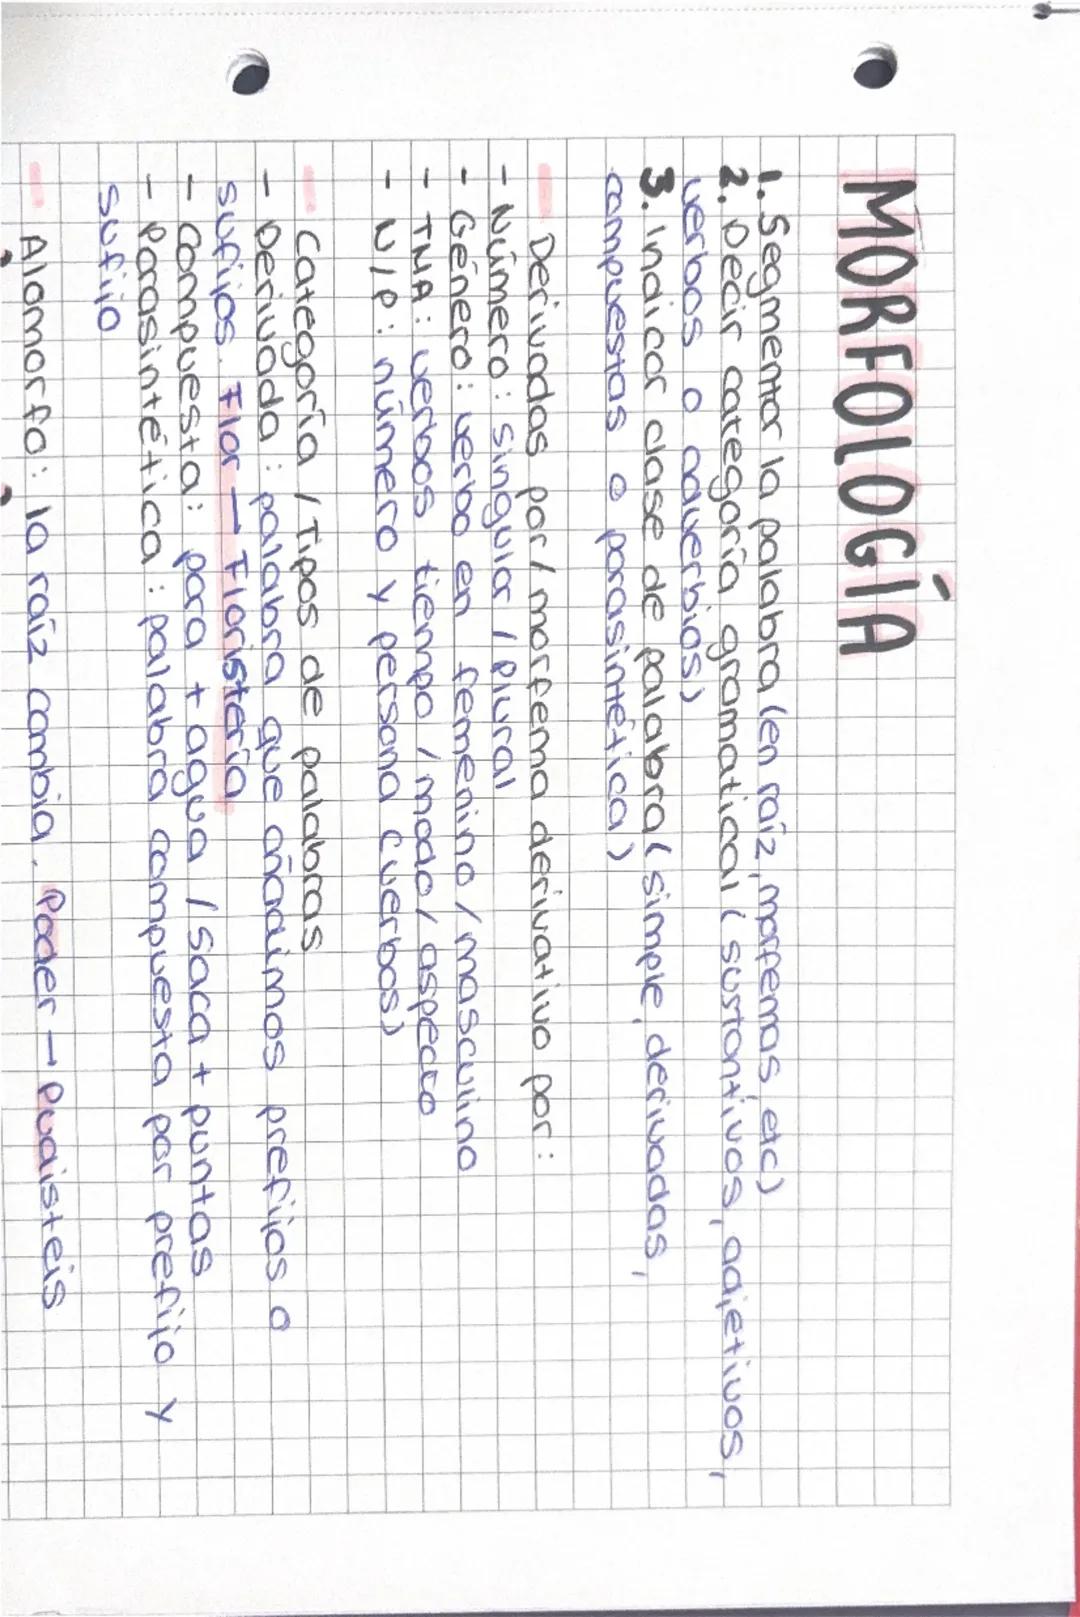 MORFOLOGÍA
1. Segmentar la palabra (en raíz, morfemas, etc)
2. Decir categoría gramatical (sustantivos, adjetivos,
verbos o adverbios)
3. indicar clase de palabra (simple, derivadas,
compuestas o parasintética)
- Derivados por / morfema derivativo por:
- Número: singular / plural
- Género: verbo en femenino / masculino
- TMA: verbos tiempo / modo / aspecto
- N/P: número y persona (verbos)
- Categoría / Tipos de palabras
- Derivada: palabra que añadimos prefijos o
sufijos. Flor → Floristería
- Compuesta: para + agua / Saca + puntas
- Parasintética: palabra compuesta por prefijo y
sufijo
- Alomorfo: la raíz cambia. Poder → Pudisteis